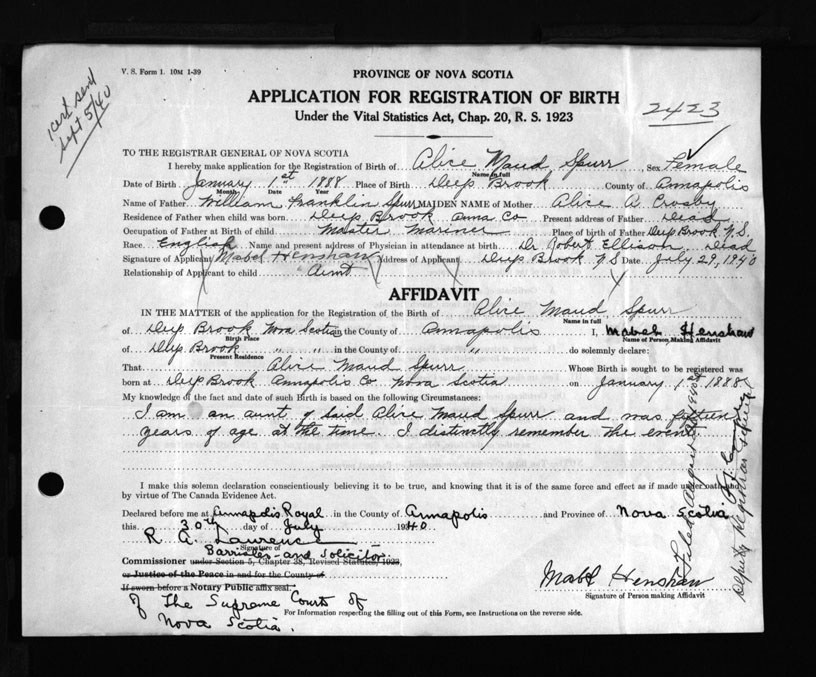 V. S. Form 1. 10M 1-39
1 cert sent
Sept 5/40
PROVINCE OF NOVA SCOTIA
APPLICATION FOR REGISTRATION OF BIRTH
Under the Vital Statistics Act, Chap. 20, R. S. 1923
2423
TO THE REGISTRAR GENERAL OF NOVA SCOTIA
I hereby make application for the Registration of Birth of Alice Maud Spurr, Sex Female
Name in full
Date of Birth January 1st 1888 Place of Birth Deep Brook County of Annapolis
Month Date Year
Name of Father William Franklin Spurr MAIDEN NAME of Mother Alice A. Crosby
Residence of Father when child was born Deep Brook Anna Co Present address of Father Dead
Occupation of Father at Birth of child Master Mariner Place of birth of Father Deep Brook N.S.
Race English Name and present address of Physician in attendance at birth Dr Robert Ellison Dead
Signature of Applicant Mabel Henshaw Address of Applicant Deep Brook N S Date July 29, 1940
Relationship of Applicant to child Aunt
AFFIDAVIT
IN THE MATTER of the application for the Registration of the Birth of Alice Maud Spurr
Name in full
of Deep Brook Nova Scotia in the County of Annapolis I, Mabel Henshaw
Birth Place Name of Person Making Affidavit
of Deep Brook " " in the County of " do solemnly declare:
Present Residence
That Alice Maud Spurr Whose Birth is sought to be registered was
born at Deep Brook Annapolis Co Nova Scotia on January 1st 1888
My knowledge of the fact and date of such Birth is based on the following Circumstances:
I am an aunt of said Alice Maud Spurr and was fifteen
years of age at the time. I distinctly remember the event.
I make this solemn declaration conscientiously believing it to be true, and knowing that it is of the same force and effect as if made under oath and
by virtue of The Canada Evidence Act.
Declared before me at Annapolis Royal in the County of Annapolis and Province of Nova Scotia
this 30th day of July 1940
R. A. Laurence
Signature of
Barrister and Solicitor
Commissioner under Section 5, Chapter 38, Revised Statutes, 1923,
or Justice of the Peace in and for the County of
If sworn before a Notary Public affix seal.
of The Supreme Court of
Nova Scotia.
Mabel Henshaw
Signature of Person making Affidavit
For Information respecting the filling out of this Form, see Instructions on the reverse side.
Filed August
Deputy Registrar General